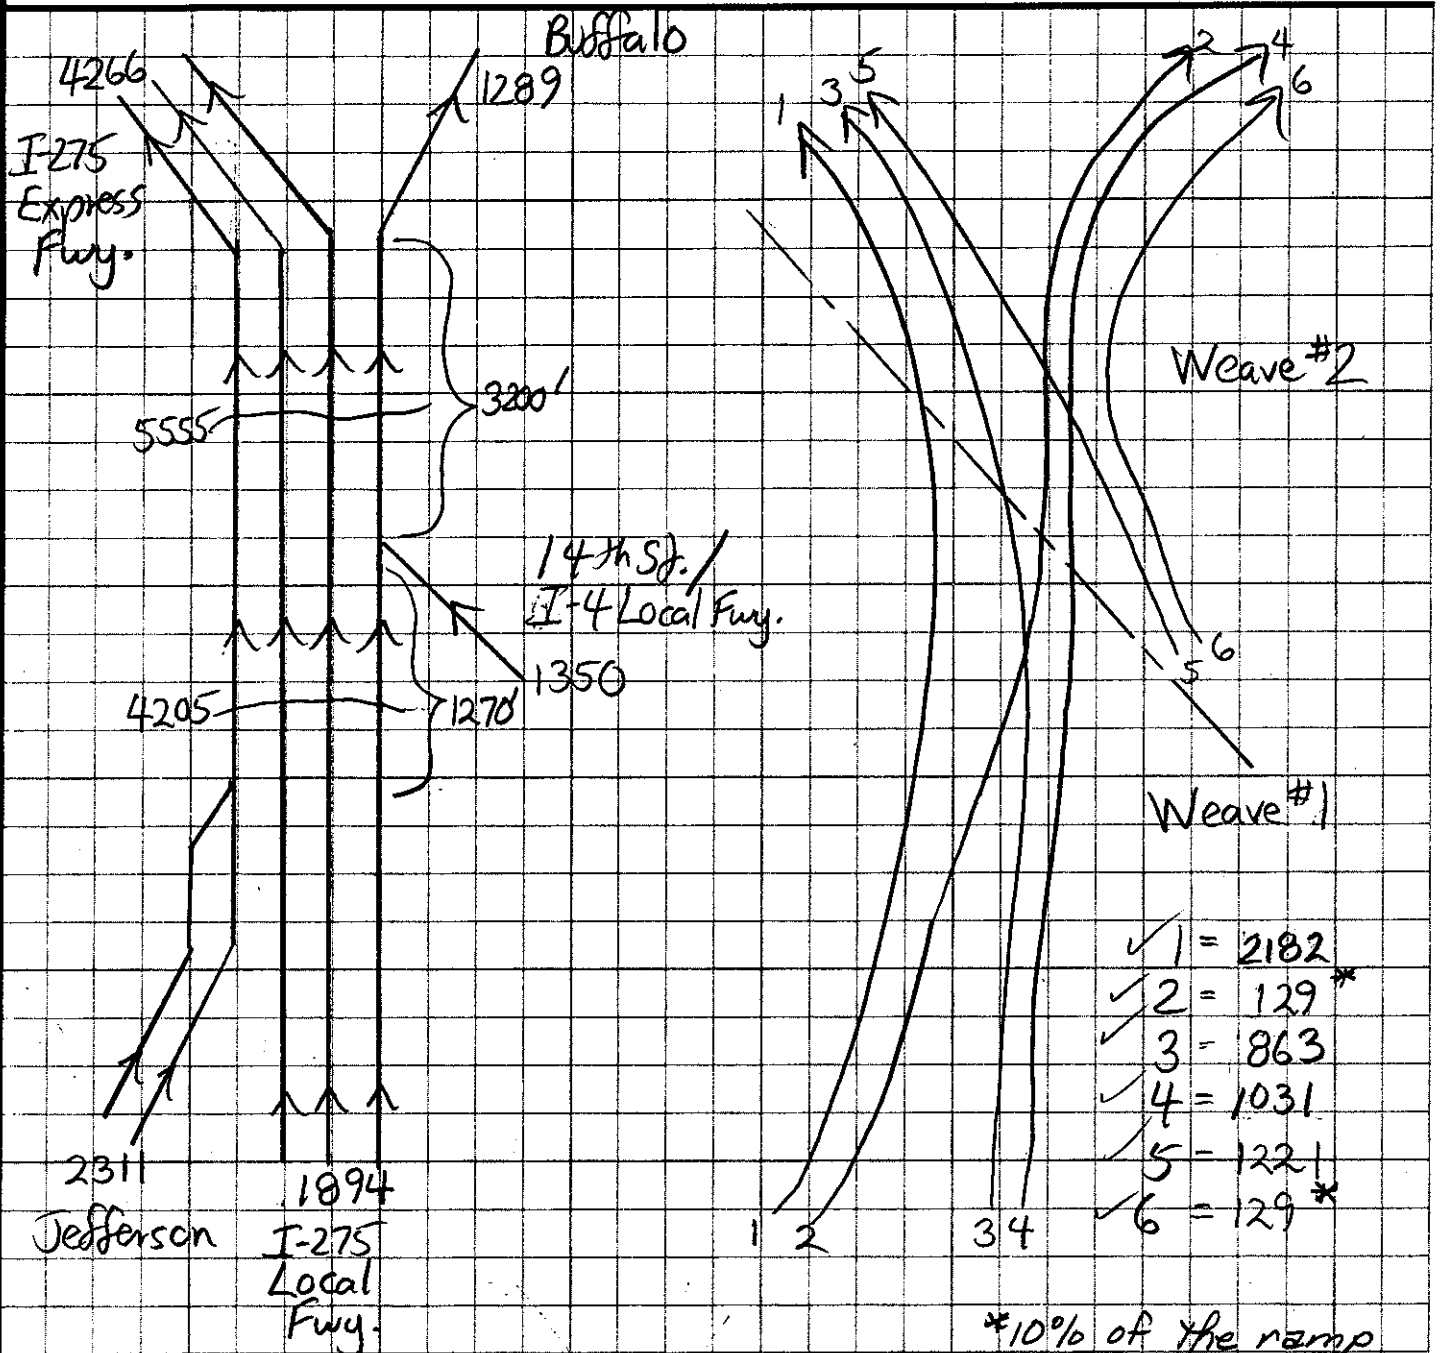 Buffalo
4266
1289
I-275
Express
Fwy.
5555
3200'
14th St./
I-4 Local Fwy.
1350
4205
1270'
2311
Jefferson
1894
I-275
Local
Fwy.
1
3
5
2
4
6
Weave #2
6
5
Weave #1
✓ 1 = 2182
✓ 2 = 129*
✓ 3 = 863
✓ 4 = 1031
✓ 5 = 1221
✓ 6 = 129*
1
2
3
4
*10% of the ramp